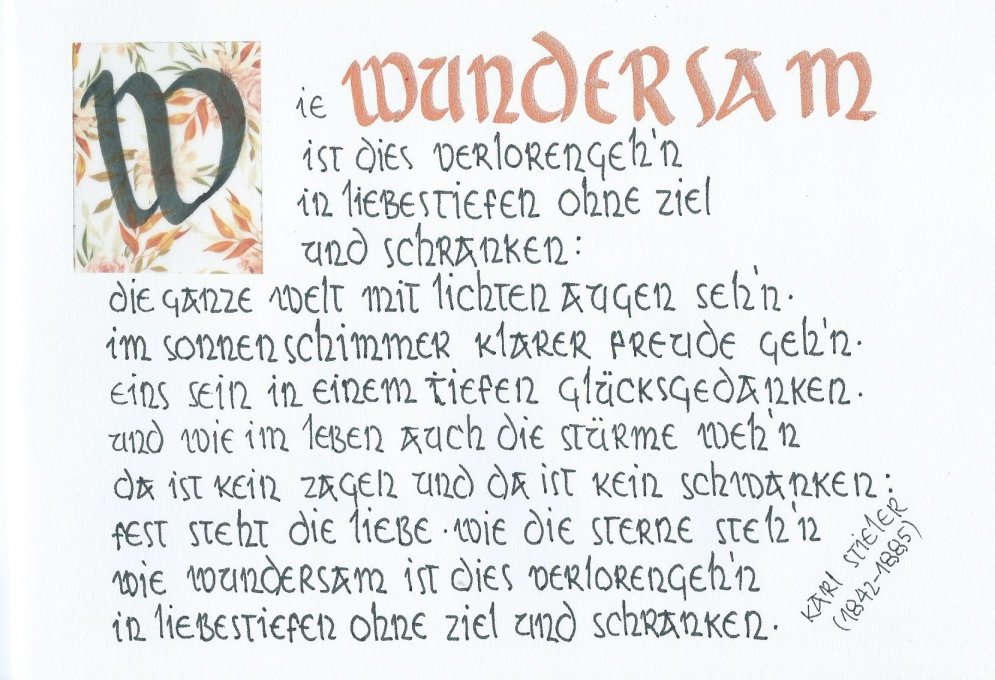 Wie WUNDERSAM
ist dies verlorengeh'n
in liebestiefen ohne ziel
und schranken:
die ganze welt mit lichten augen seh'n.
im sonnenschimmer klarer freude geh'n.
eins sein in einem tiefen glücksgedanken.
und wie im leben auch die stürme weh'n
da ist kein zagen und da ist kein schwanken:
fest steht die liebe. wie die sterne steh'n
wie wundersam ist dies verlorengeh'n
in liebestiefen ohne ziel und schranken.
KARl STIElER
(1842-1885)